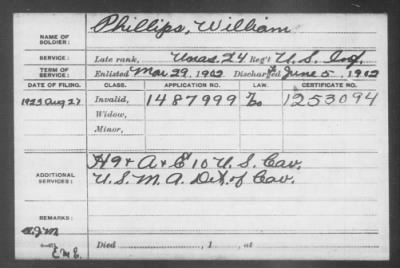 NAME OF SOLDIER: Phillips, William
SERVICE: Late rank, Unas. 24 Reg't U.S. Inf.
TERM OF SERVICE: Enlisted Mar. 29, 1902 Discharged June 5, 1902
DATE OF FILING. CLASS. APPLICATION NO. LAW. CERTIFICATE NO.
1923 Aug 27 Invalid, 1487999 1253094
Widow,
Minor,
ADDITIONAL SERVICES: H 9 + A + E 10 U.S. Cav.
U.S.M.A. Det. of Cav.
REMARKS:
Died , 1 , at